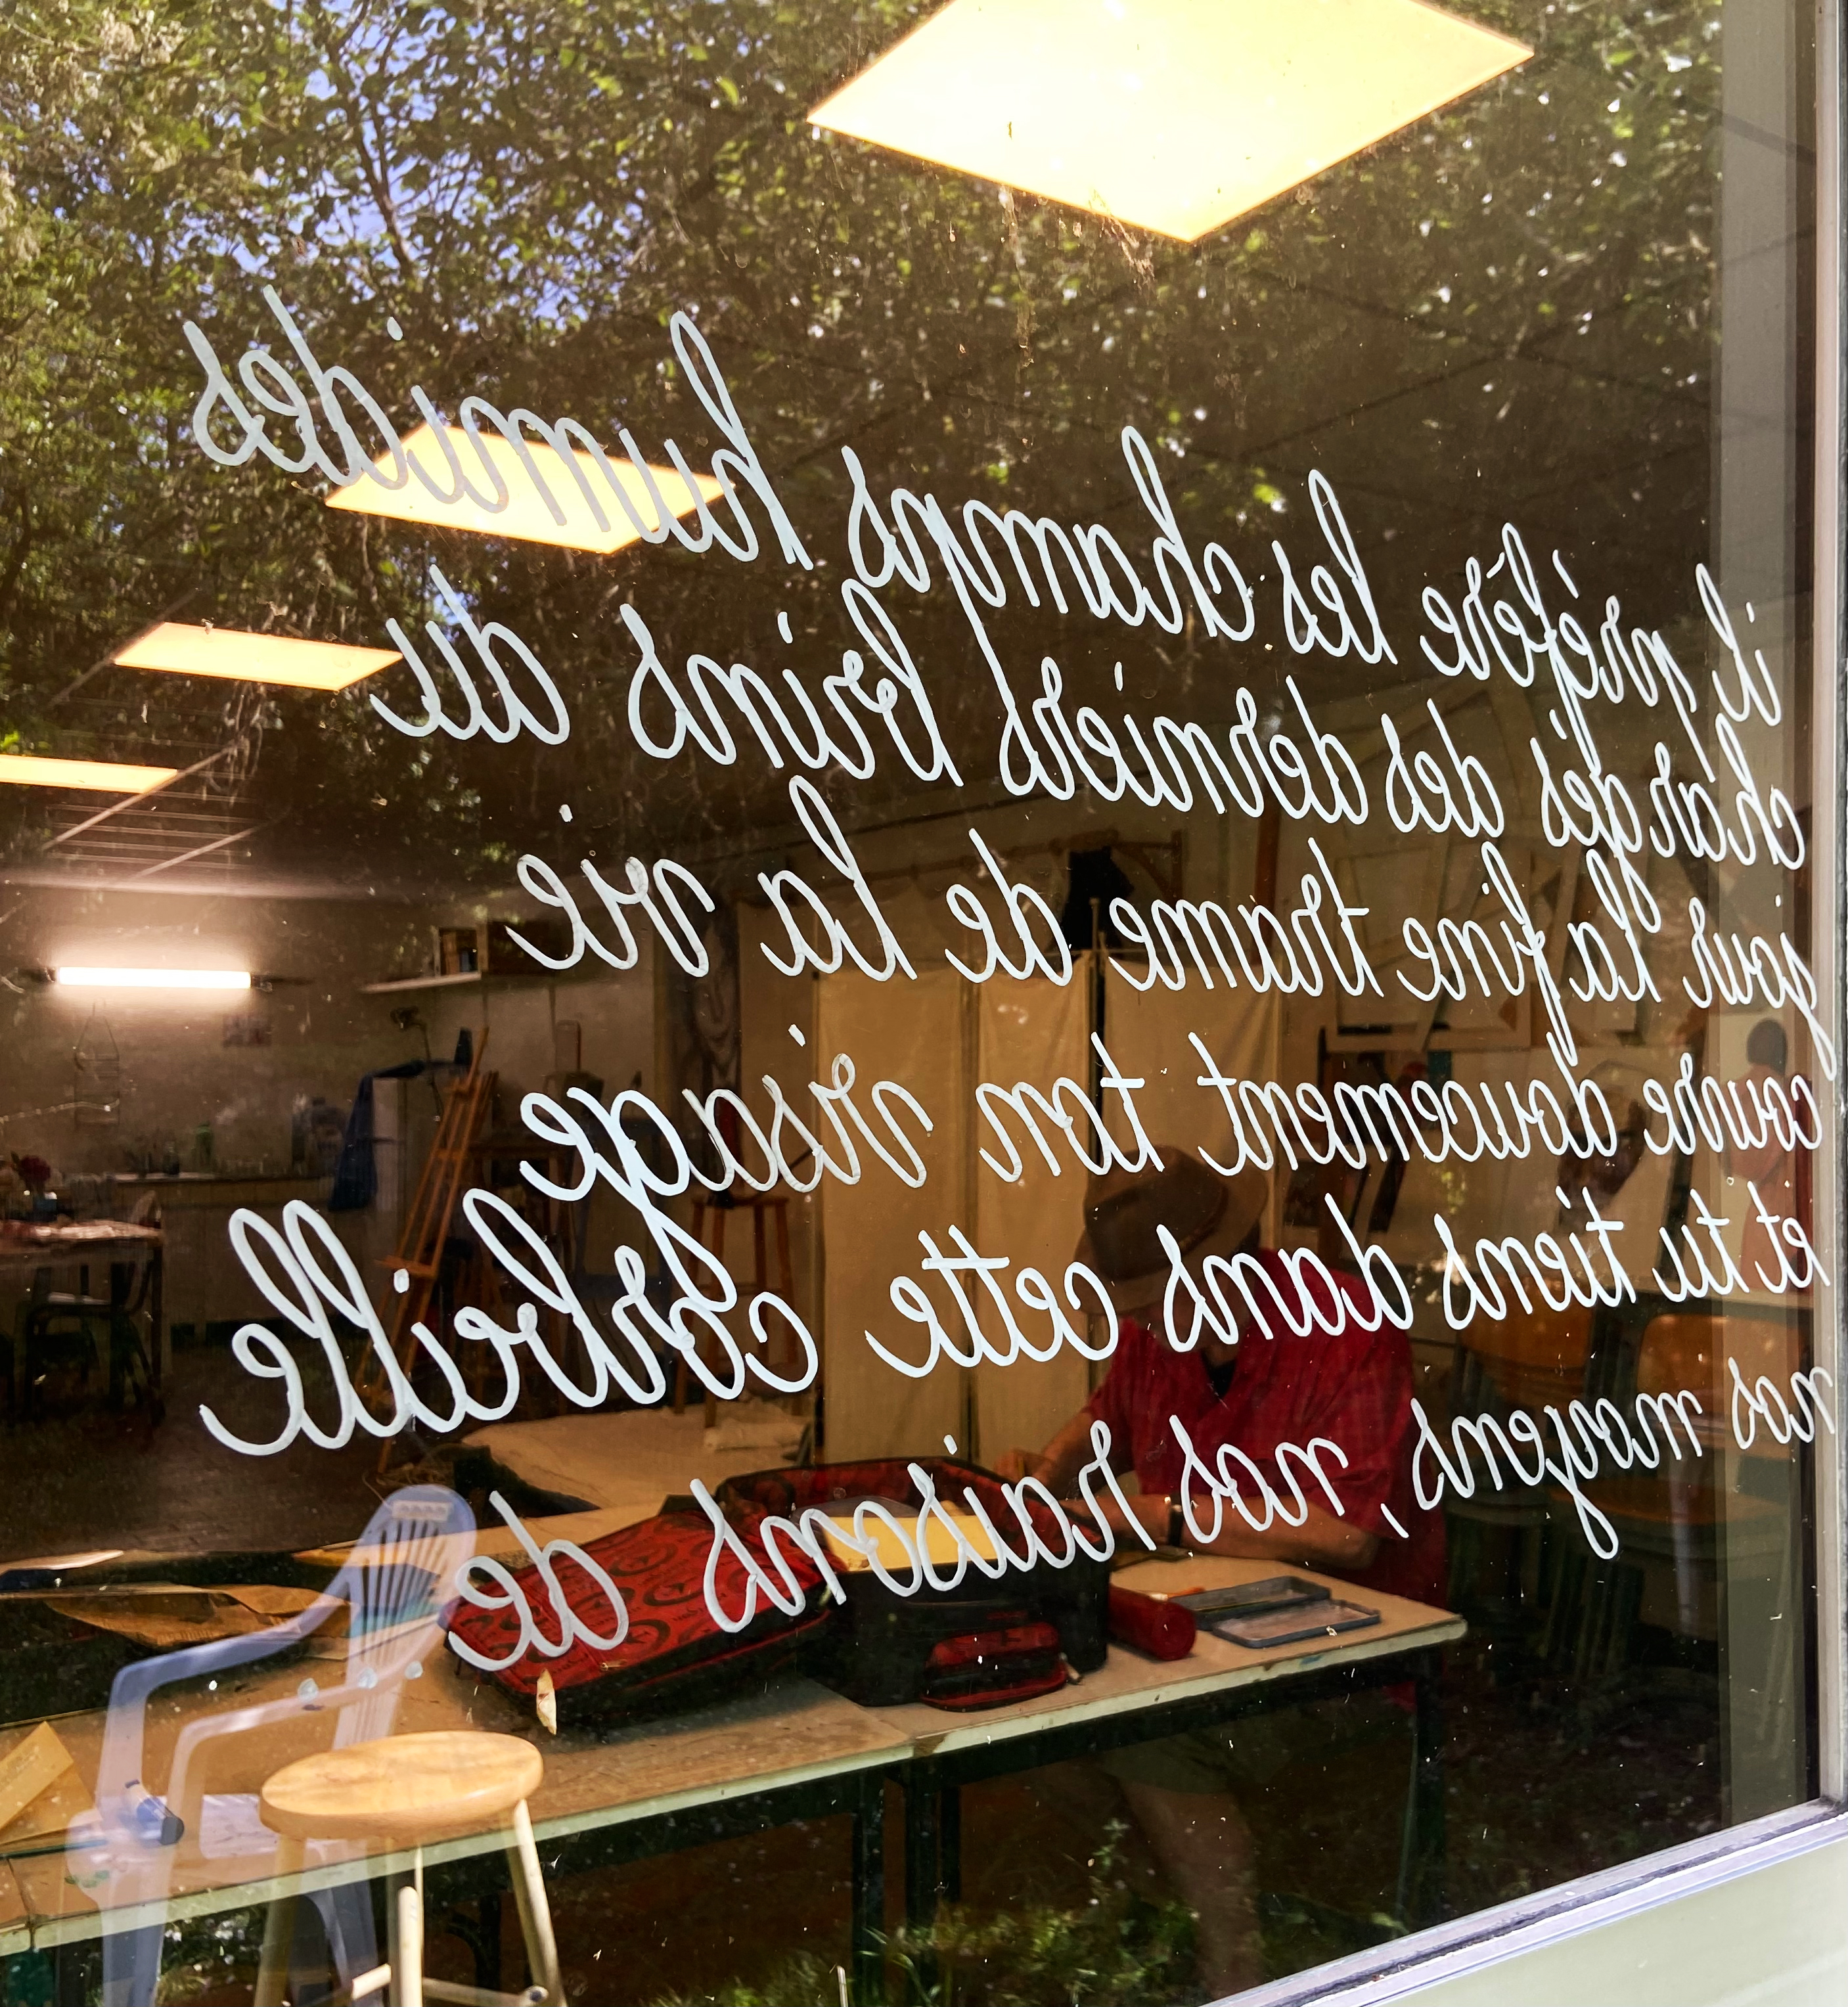 il préfère les champs humides
chargés des derniers brins du
jour la fine trame de la vie
couvre doucement ton visage
et tu tiens dans cette corbeille
nos moyens, nos raisons de